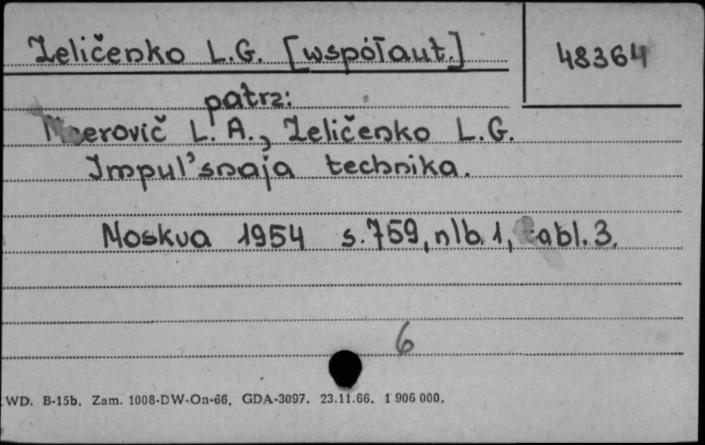 Zeličenko L.G. [współaut.]
48364
patrz:
Meerovič L. A., Zeličenko L.G.
Impul'snaja technika.
Moskva 1954 s. 759, nlb. 1, tabl. 3.
6
WD. B-15b. Zam. 1008-DW-On-66. GDA-3097. 23.11.66. 1 906 000.